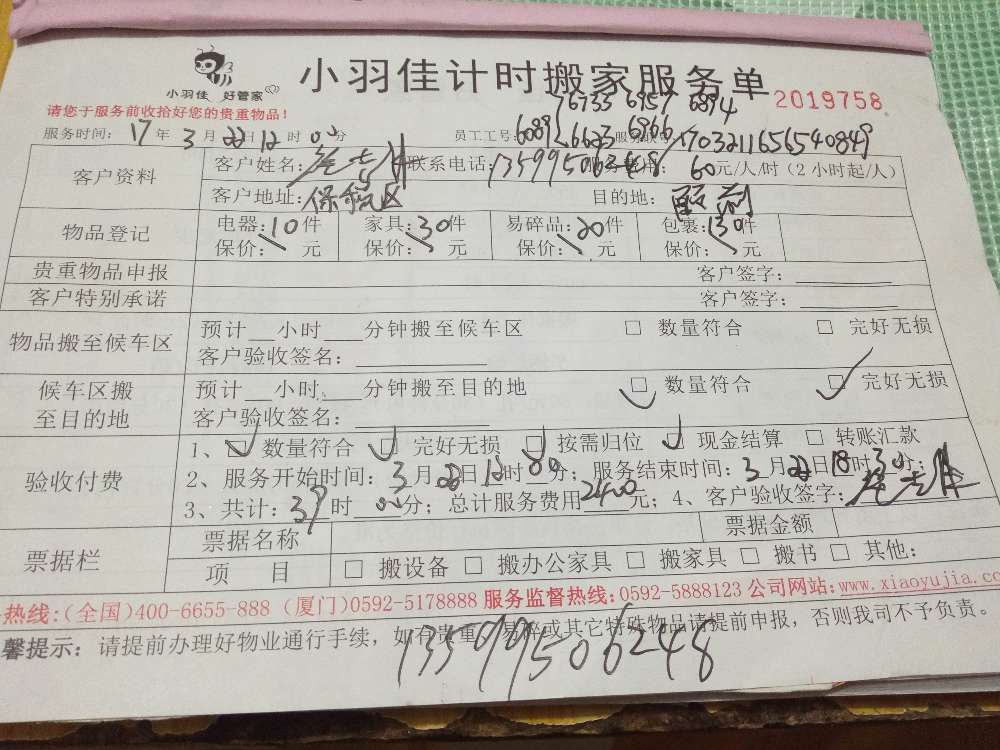 小羽佳计时搬家服务单
小羽佳 好管家
2019758
请您于服务前收拾好您的贵重物品！
76735 6957 6894
6089 6623 6966
服务时间：17年3月22日12时00分 员工工号： 服务联号 170321165654 0849
客户资料 客户姓名： 联系电话：13599506248 服务费用：60元/人/时（2小时起/人）
客户地址：保税区 目的地：
物品登记 电器：10件 家具：30件 易碎品：20件 包裹：130件
保价： 元 保价： 元 保价： 元 保价： 元
贵重物品申报 客户签字：
客户特别承诺 客户签字：
物品搬至候车区 预计 小时 分钟搬至候车区 □ 数量符合 □ 完好无损
客户验收签名：
候车区搬至目的地 预计 小时 分钟搬至目的地 □ 数量符合 □ 完好无损
客户验收签名：
验收付费 1、□ 数量符合 □ 完好无损 □ 按需归位 □ 现金结算 □ 转账汇款
2、服务开始时间：3月22日12时00分；服务结束时间：3月22日18时30分；
3、共计：39时00分；总计服务费用2400元；4、客户验收签字：
票据栏 票据名称 票据金额
项 目 □ 搬设备 □ 搬办公家具 □ 搬家具 □ 搬书 □ 其他：
热线：(全国)400-6655-888 (厦门)0592-5178888 服务监督热线：0592-5888123 公司网站：www.xiaoyujia.co
馨提示：请提前办理好物业通行手续，如有贵重、易碎或其它特殊物品请提前申报，否则我司不予负责。
13599506248